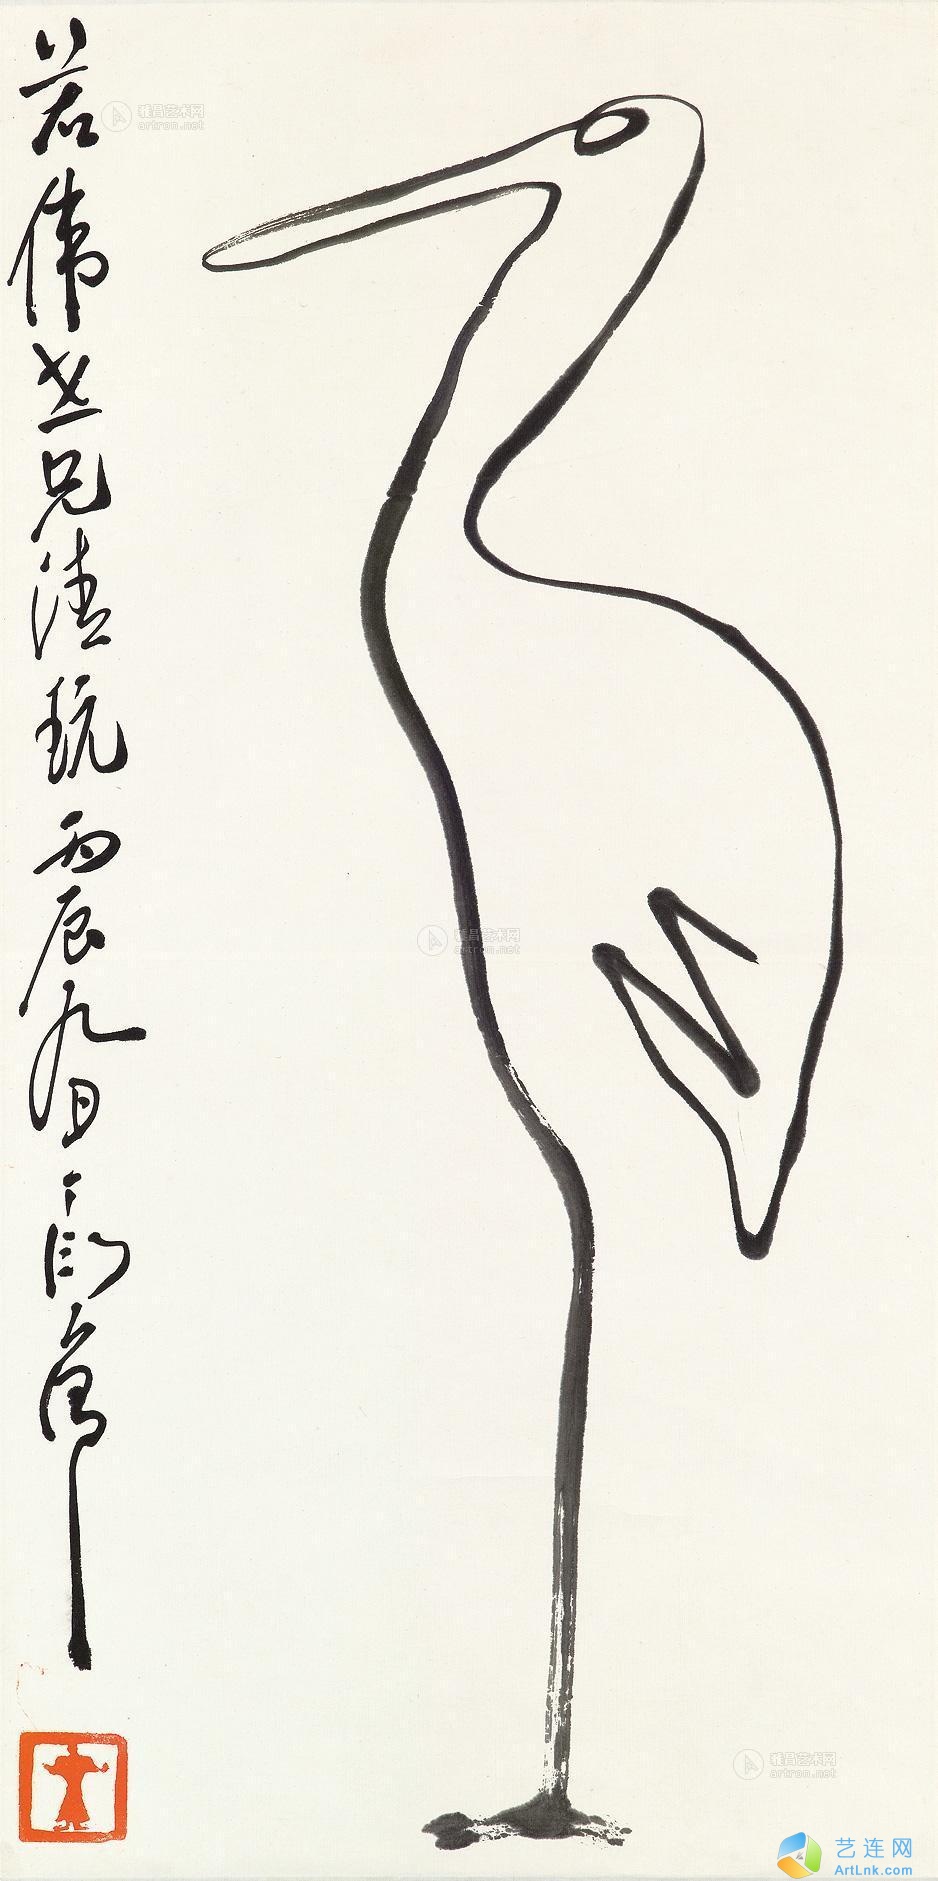 若偉老兄清玩丙辰九日丁衍庸
雅昌艺术网
artron.net
雅昌艺术网
artron.net
雅昌艺术网
artron.net
艺连网
ArtLnk.com